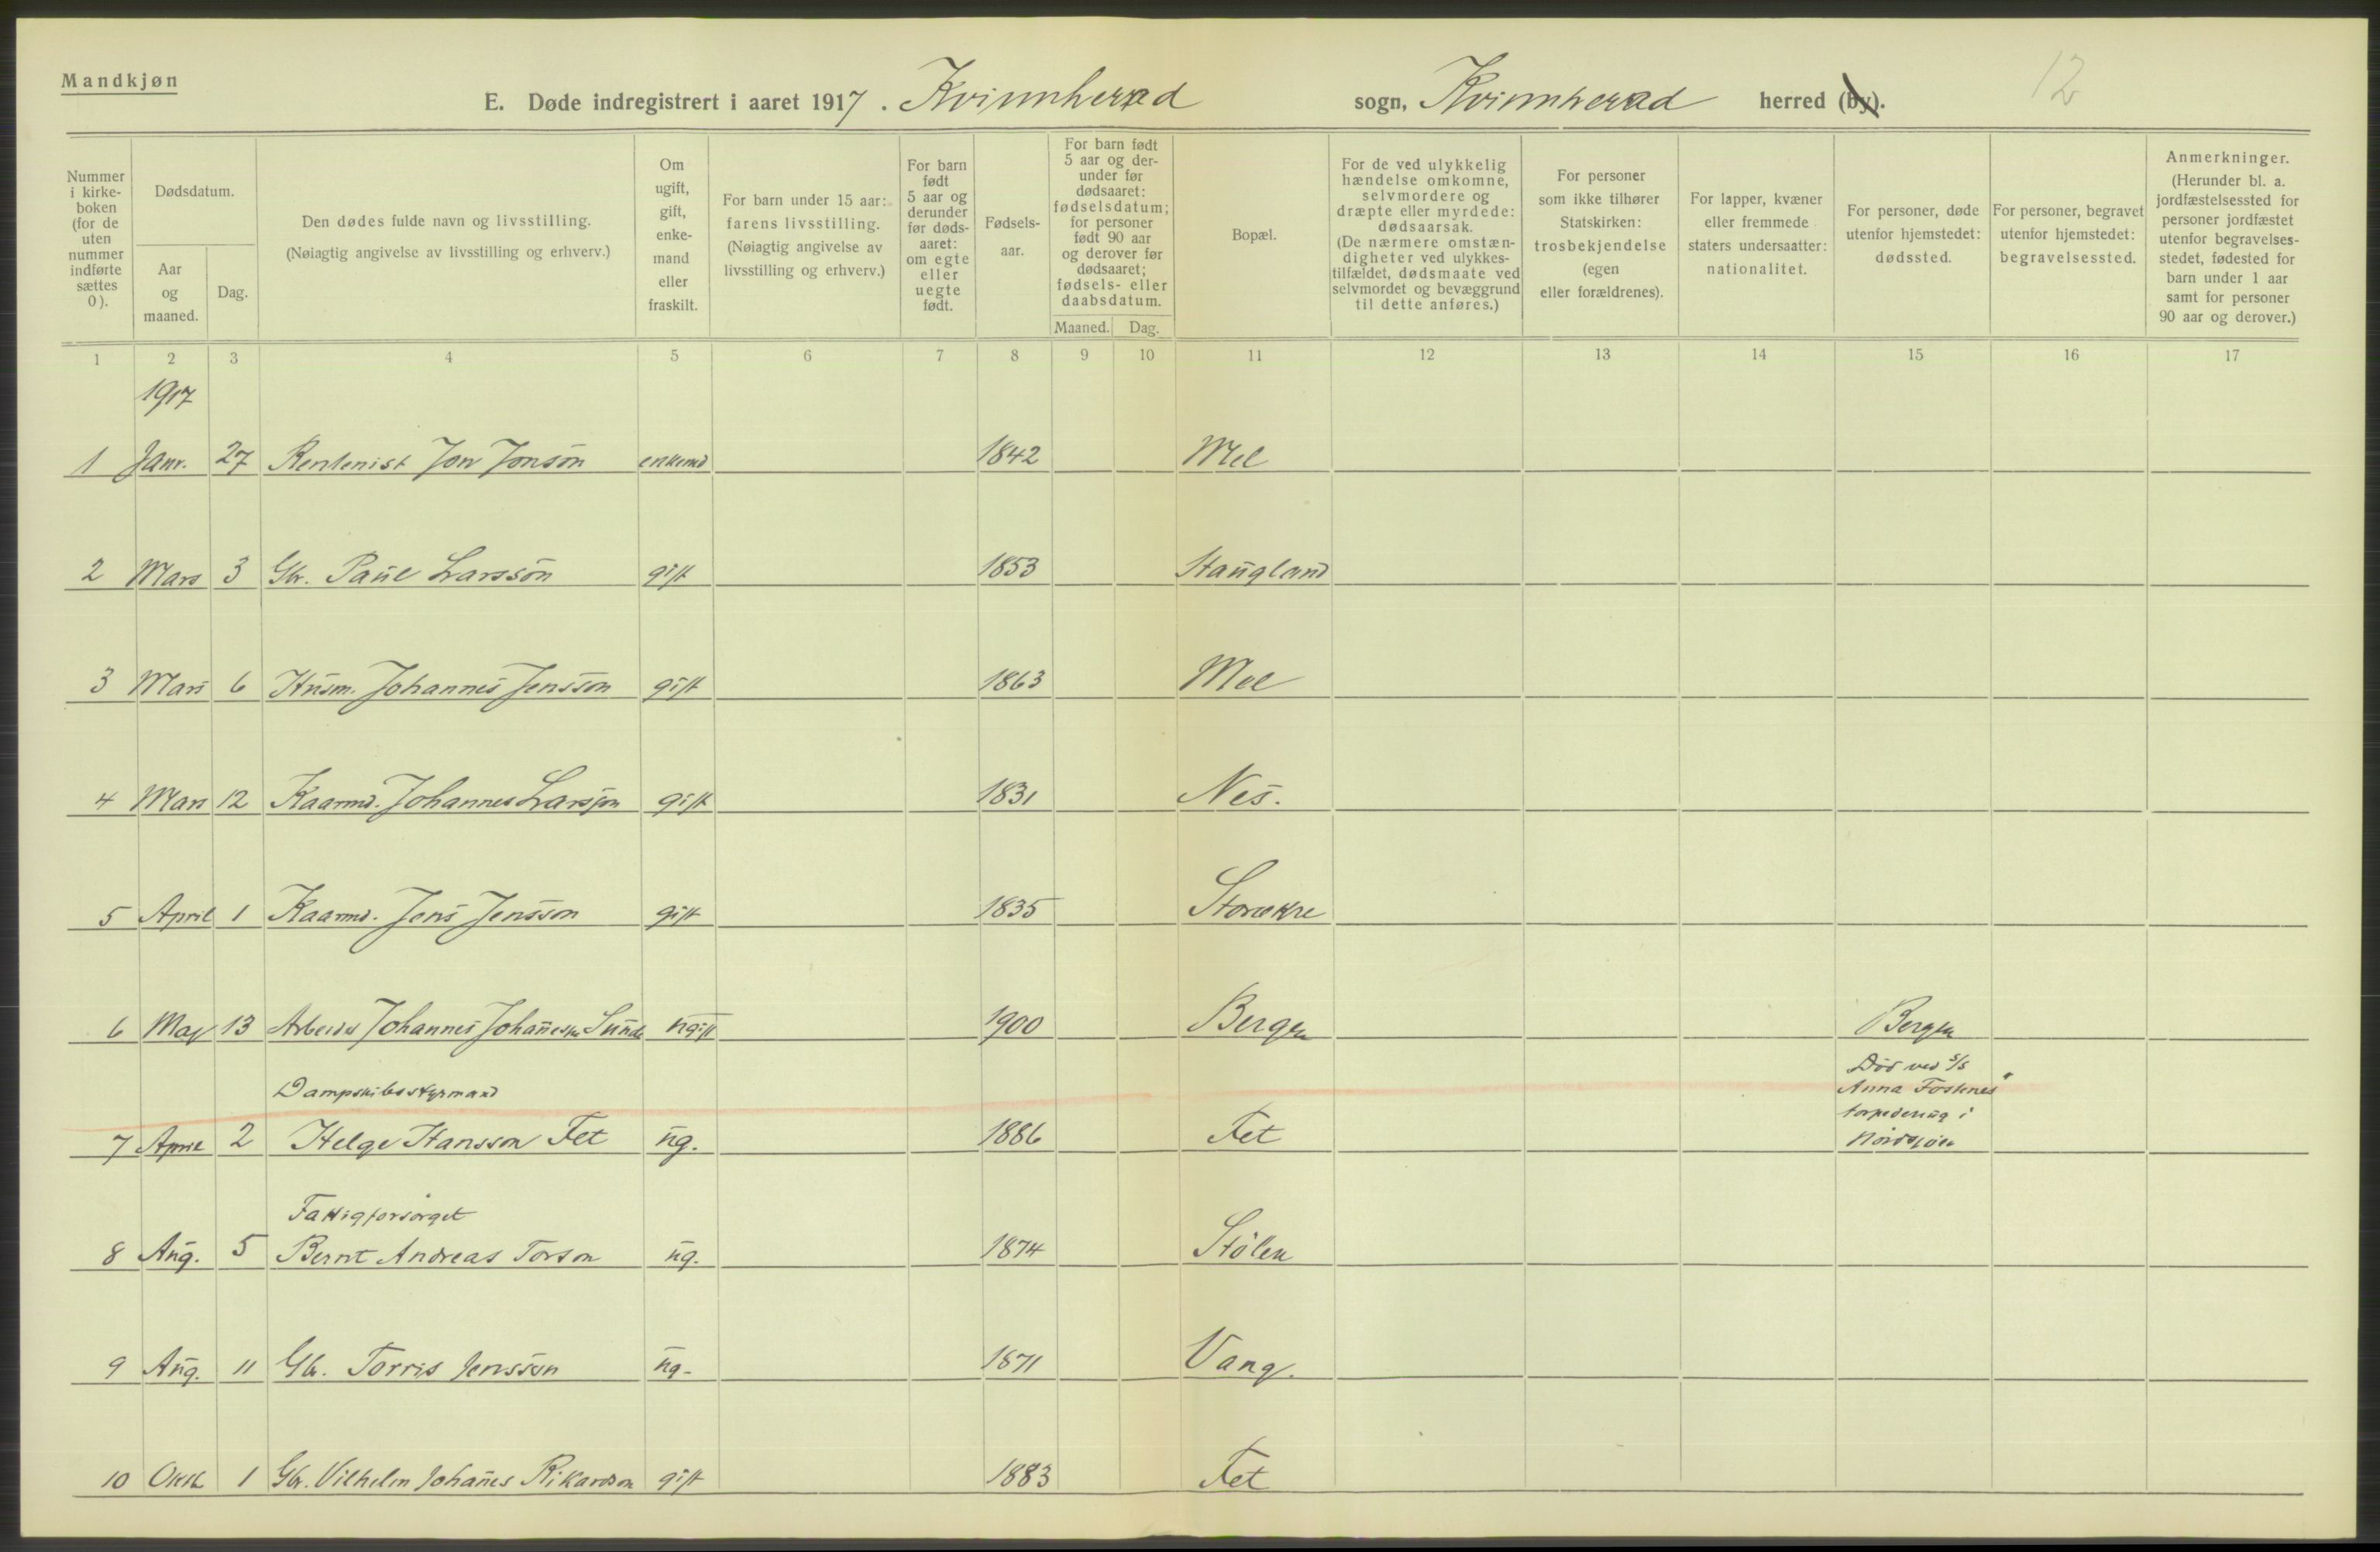 Mandkjøn
12
E. Døde indregistrert i aaret 1917. Kvinnherad sogn, Kvinnherad herred (by).
Nummer i kirkeboken (for de uten nummer indførte sættes 0).
Dødsdatum.
Aar og maaned.
Dag.
Den dødes fulde navn og livsstilling.
(Nøiagtig angivelse av livsstilling og erhverv.)
Om ugift, gift, enkemand eller fraskilt.
For barn under 15 aar: farens livsstilling.
(Nøiagtig angivelse av livsstilling og erhverv.)
For barn født 5 aar og derunder før dødsaaret: om egte eller uegte født.
Fødselsaar.
For barn født 5 aar og derunder før dødsaaret: fødselsdatum; for personer født 90 aar og derover før dødsaaret; fødsels- eller daabsdatum.
Maaned. Dag.
Bopæl.
For de ved ulykkelig hændelse omkomne, selvmordere og dræpte eller myrdede: dødsaarsak.
(De nærmere omstændigheter ved ulykkestilfældet, dødsmaate ved selvmordet og bevæggrund til dette anføres.)
For personer som ikke tilhører Statskirken: trosbekjendelse (egen eller forældrenes).
For lapper, kvæner eller fremmede staters undersaatter: nationalitet.
For personer, døde utenfor hjemstedet: dødssted.
For personer, begravet utenfor hjemstedet: begravelsessted.
Anmerkninger.
(Herunder bl. a. jordfæstelsessted for personer jordfæstet utenfor begravelsesstedet, fødested for barn under 1 aar samt for personer 90 aar og derover.)
1 2 3 4 5 6 7 8 9 10 11 12 13 14 15 16 17
1917
1 Janr. 27 Rentenist Jon Jonson enkemd 1842 Mel
2 Mars 3 Gbr. Paul Larsson gift 1853 Haugland
3 Mars 6 Husm. Johannes Jensson gift 1863 Mel
4 Mars 12 Kaarmd. Johannes Larsson gift 1831 Nes.
5 April 1 Kaarmd. Jens Jensson gift 1835 Storækre
6 Maj 13 Arbeider Johannes Johannesson Sunde ugift 1900 Bergen Bergen
Dampskibsstyrmand
7 April 2 Helge Hansson Fet ug. 1886 Fet Død ved S/S
Anna Fostenes"
torpedering i
Nordsjöen
Fattigforsørget
8 Aug. 5 Bernt Andreas Torson ug. 1874 Stølen
9 Aug. 11 Gbr. Torris Jensson ug. 1871 Vang.
10 Oktb 1 Gbr. Vilhelm Johanes Rikardson gift 1883 Fet